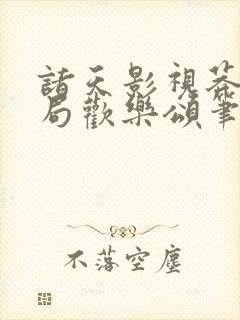 諸天影視從
局歡樂頌筆
不落空塵